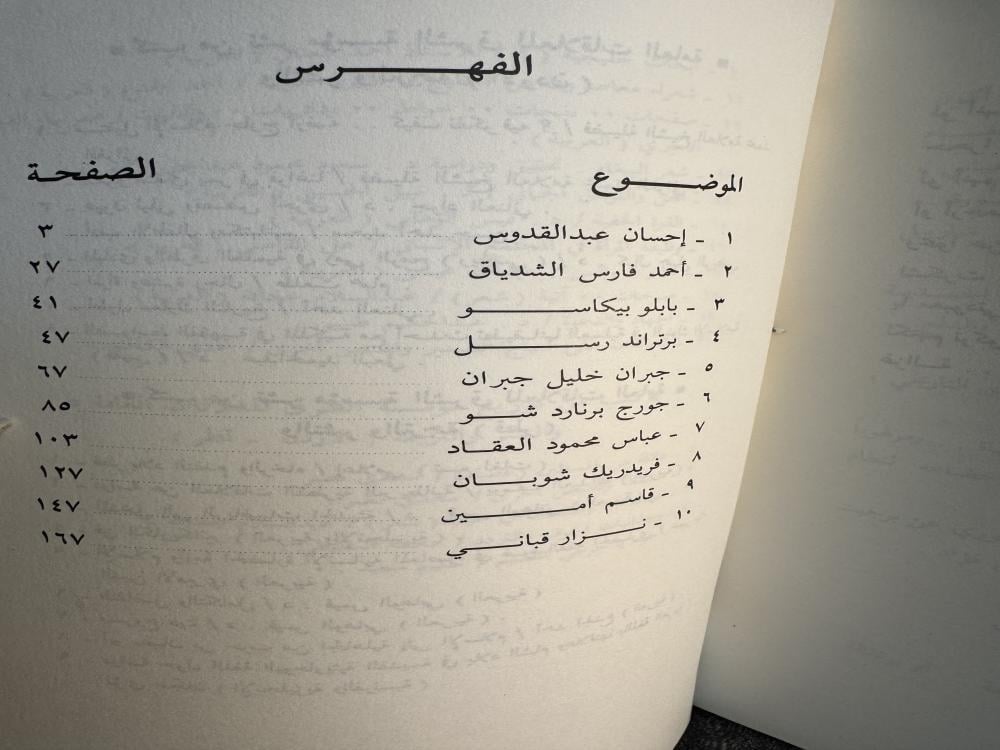 الفهرس
الموضوع الصفحة
١ - إحسان عبدالقدوس ٣
٢ - أحمد فارس الشدياق ٢٧
٣ - بابلو بيكاسو ٤١
٤ - برتراند رسل ٤٧
٥ - جبران خليل جبران ٦٧
٦ - جورج برنارد شو ٨٥
٧ - عباس محمود العقاد ١٠٣
٨ - فريدريك شوبان ١٢٧
٩ - قاسم أمين ١٤٧
١٠ - نزار قباني ١٦٧